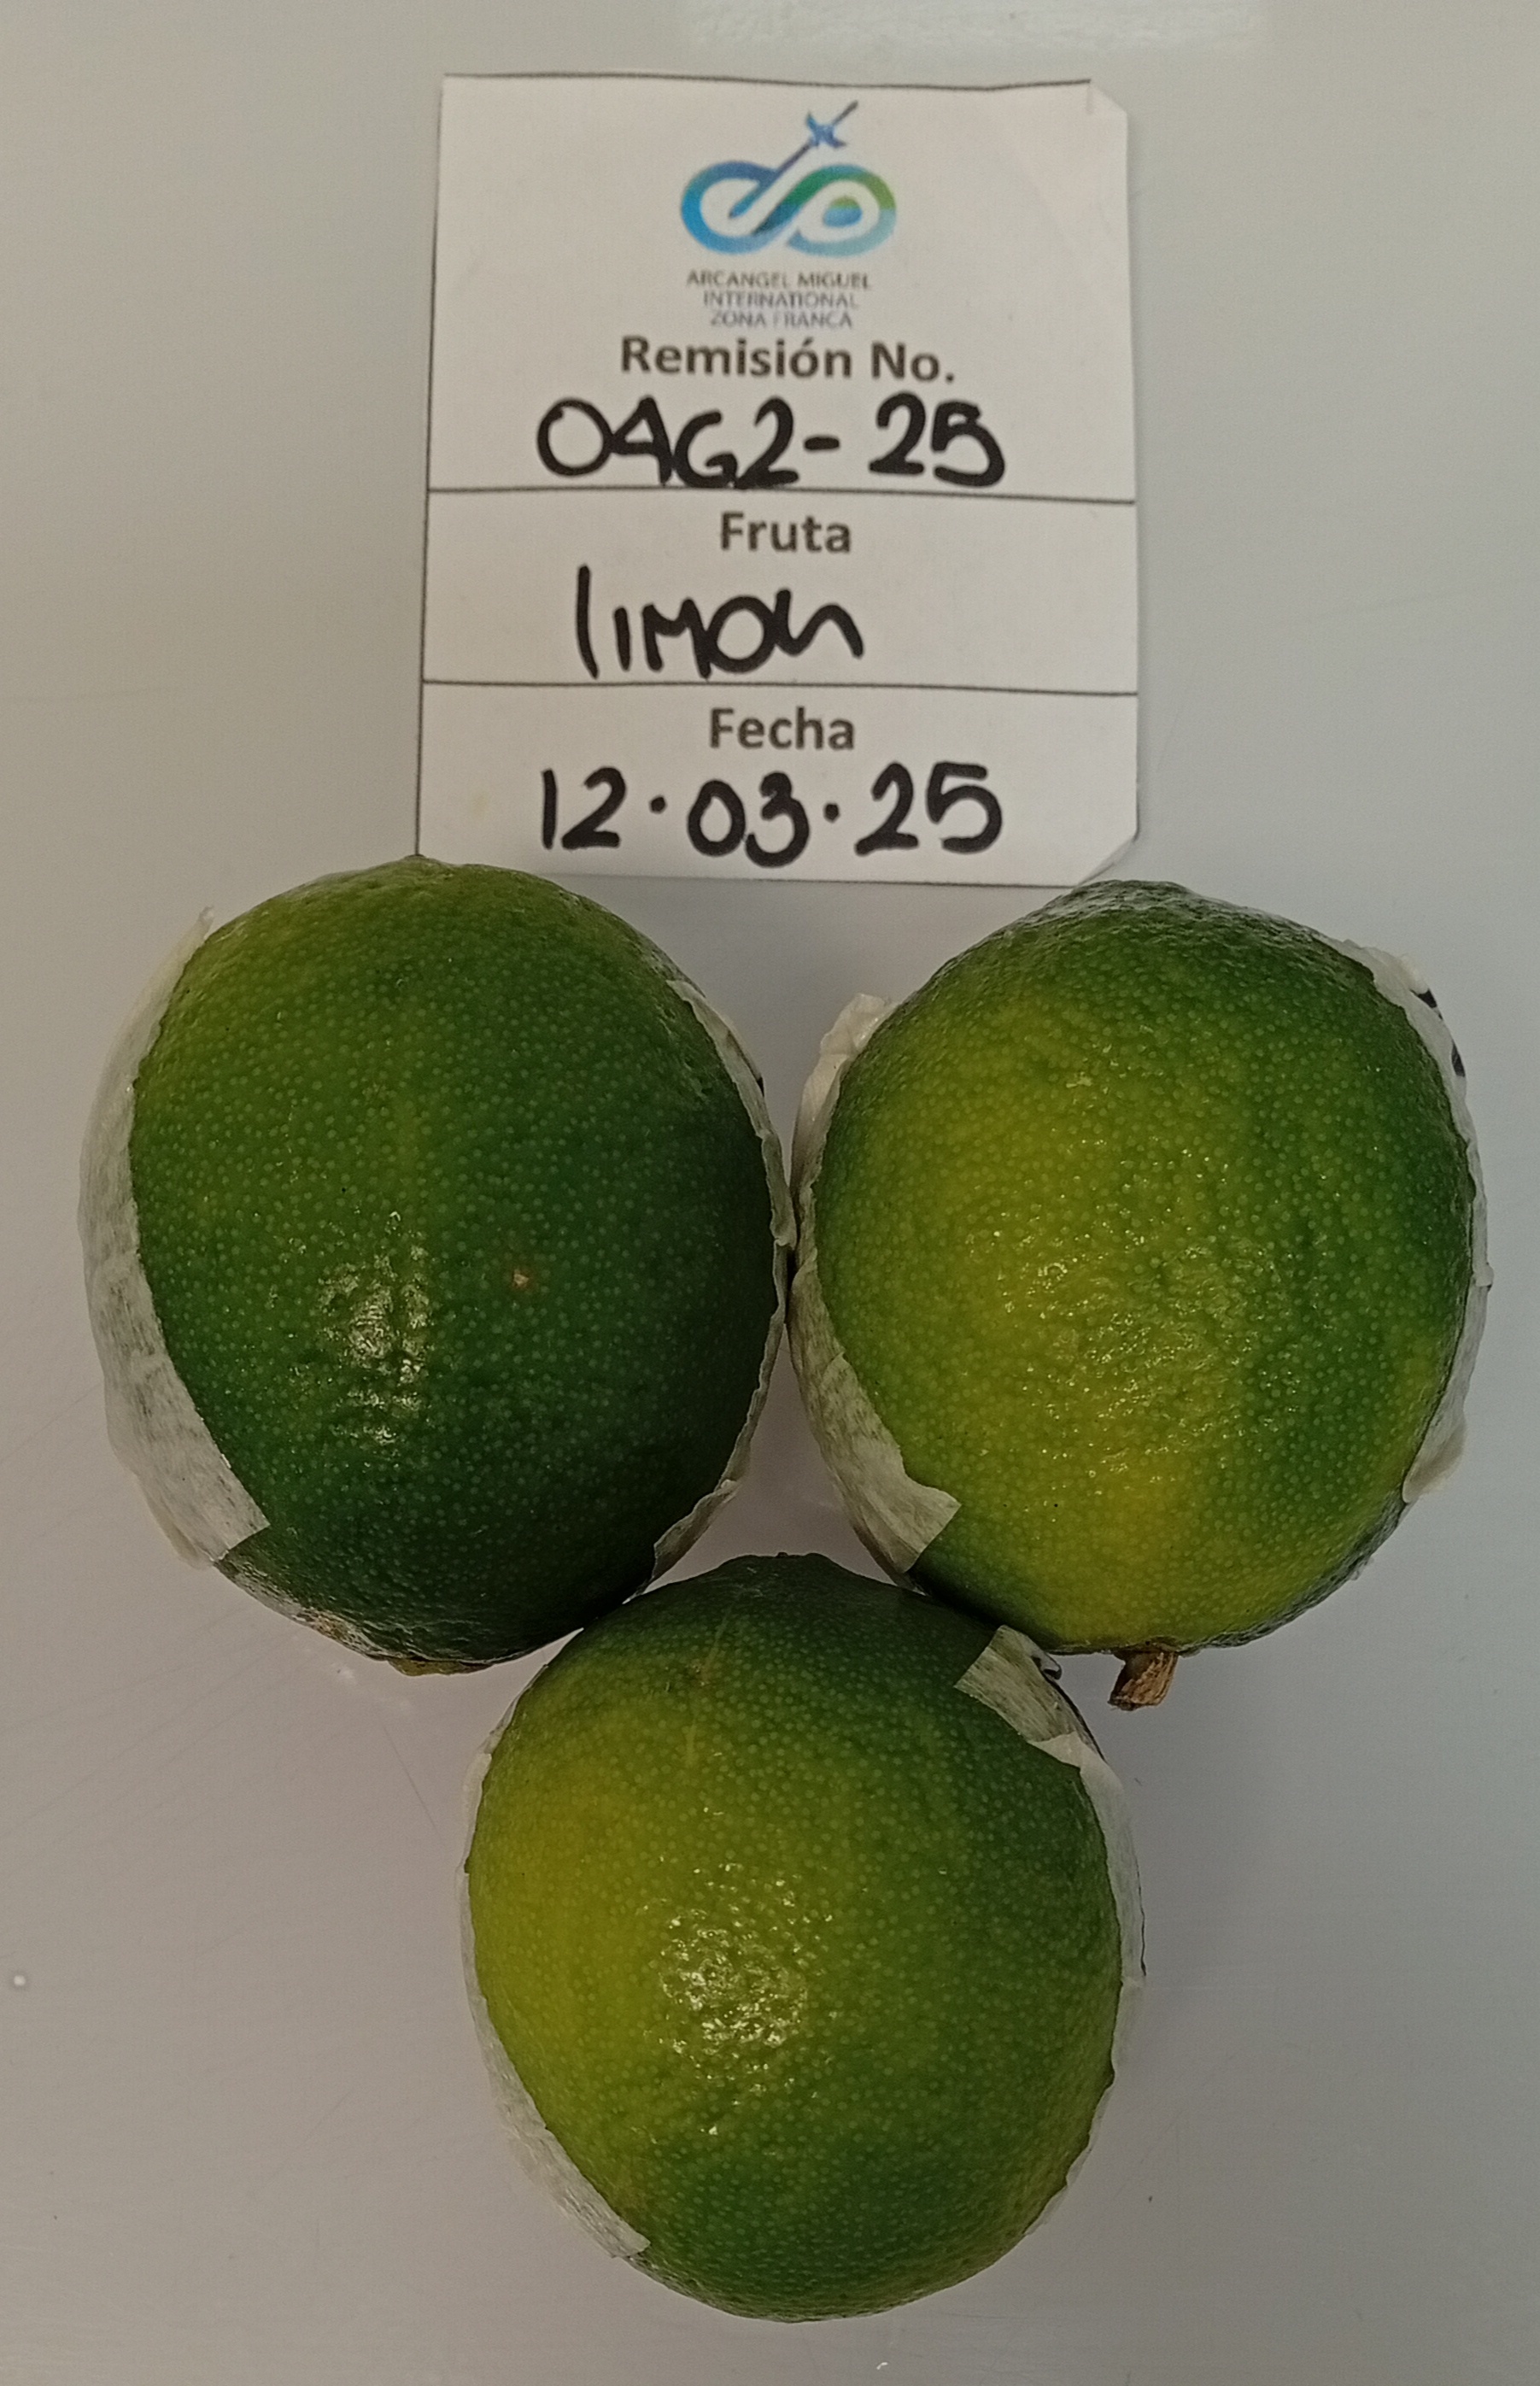 ARCANGEL MIGUEL
INTERNATIONAL
ZONA FRANCA
Remisión No.
0462-25
Fruta
limon
Fecha
12.03.25